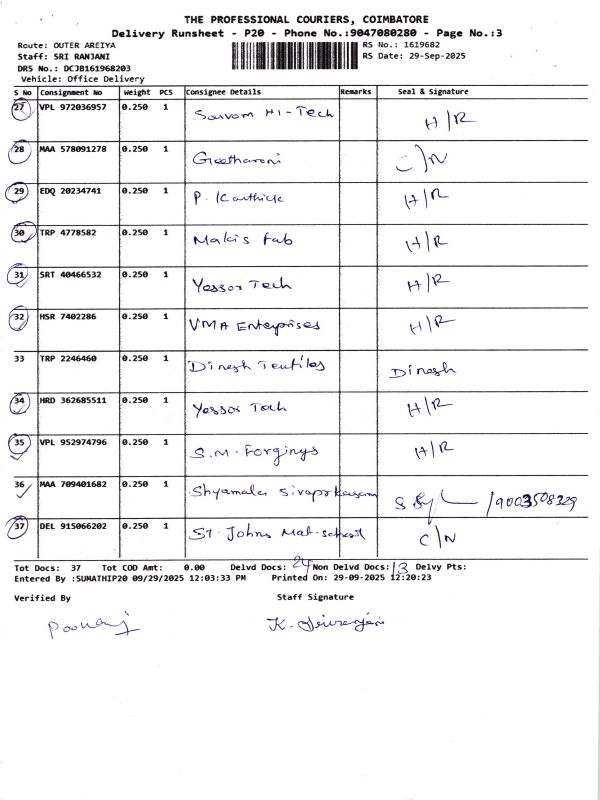 THE PROFESSIONAL COURIERS, COIMBATORE
Delivery Runsheet - P20 - Phone No.:9047080280 - Page No.:3
Route: OUTER AREIYA RS No.: 1619682
Staff: SRI RANJANI RS Date: 29-Sep-2025
DRS No.: DCJB161968203
Vehicle: Office Delivery
S No Consignment No Weight PCS Consignee Details Remarks Seal & Signature
27 VPL 972036957 0.250 1 Sarvam Hi-Tech H/R
28 MAA 578091278 0.250 1 Geetharani C/N
29 EDQ 20234741 0.250 1 P. Karthick H/R
30 TRP 4778582 0.250 1 Makis fab H/R
31 SRT 40466532 0.250 1 Yessor Tech H/R
32 HSR 7402286 0.250 1 VMA Enterprises H/R
33 TRP 2246460 0.250 1 Dinesh Textiles Dinesh
34 HRD 362685511 0.250 1 Yessor Tech H/R
35 VPL 952974796 0.250 1 S.M. Forgings H/R
36 MAA 709401682 0.250 1 Shyamala Sivaprakasam /9003508329
37 DEL 915066202 0.250 1 St. Johns Mat. School C/N
Tot Docs: 37 Tot COD Amt: 0.00 Delvd Docs: 24 Non Delvd Docs: 13 Delvy Pts:
Entered By :SUMATHIP20 09/29/2025 12:03:33 PM Printed On: 29-09-2025 12:20:23
Verified By Staff Signature